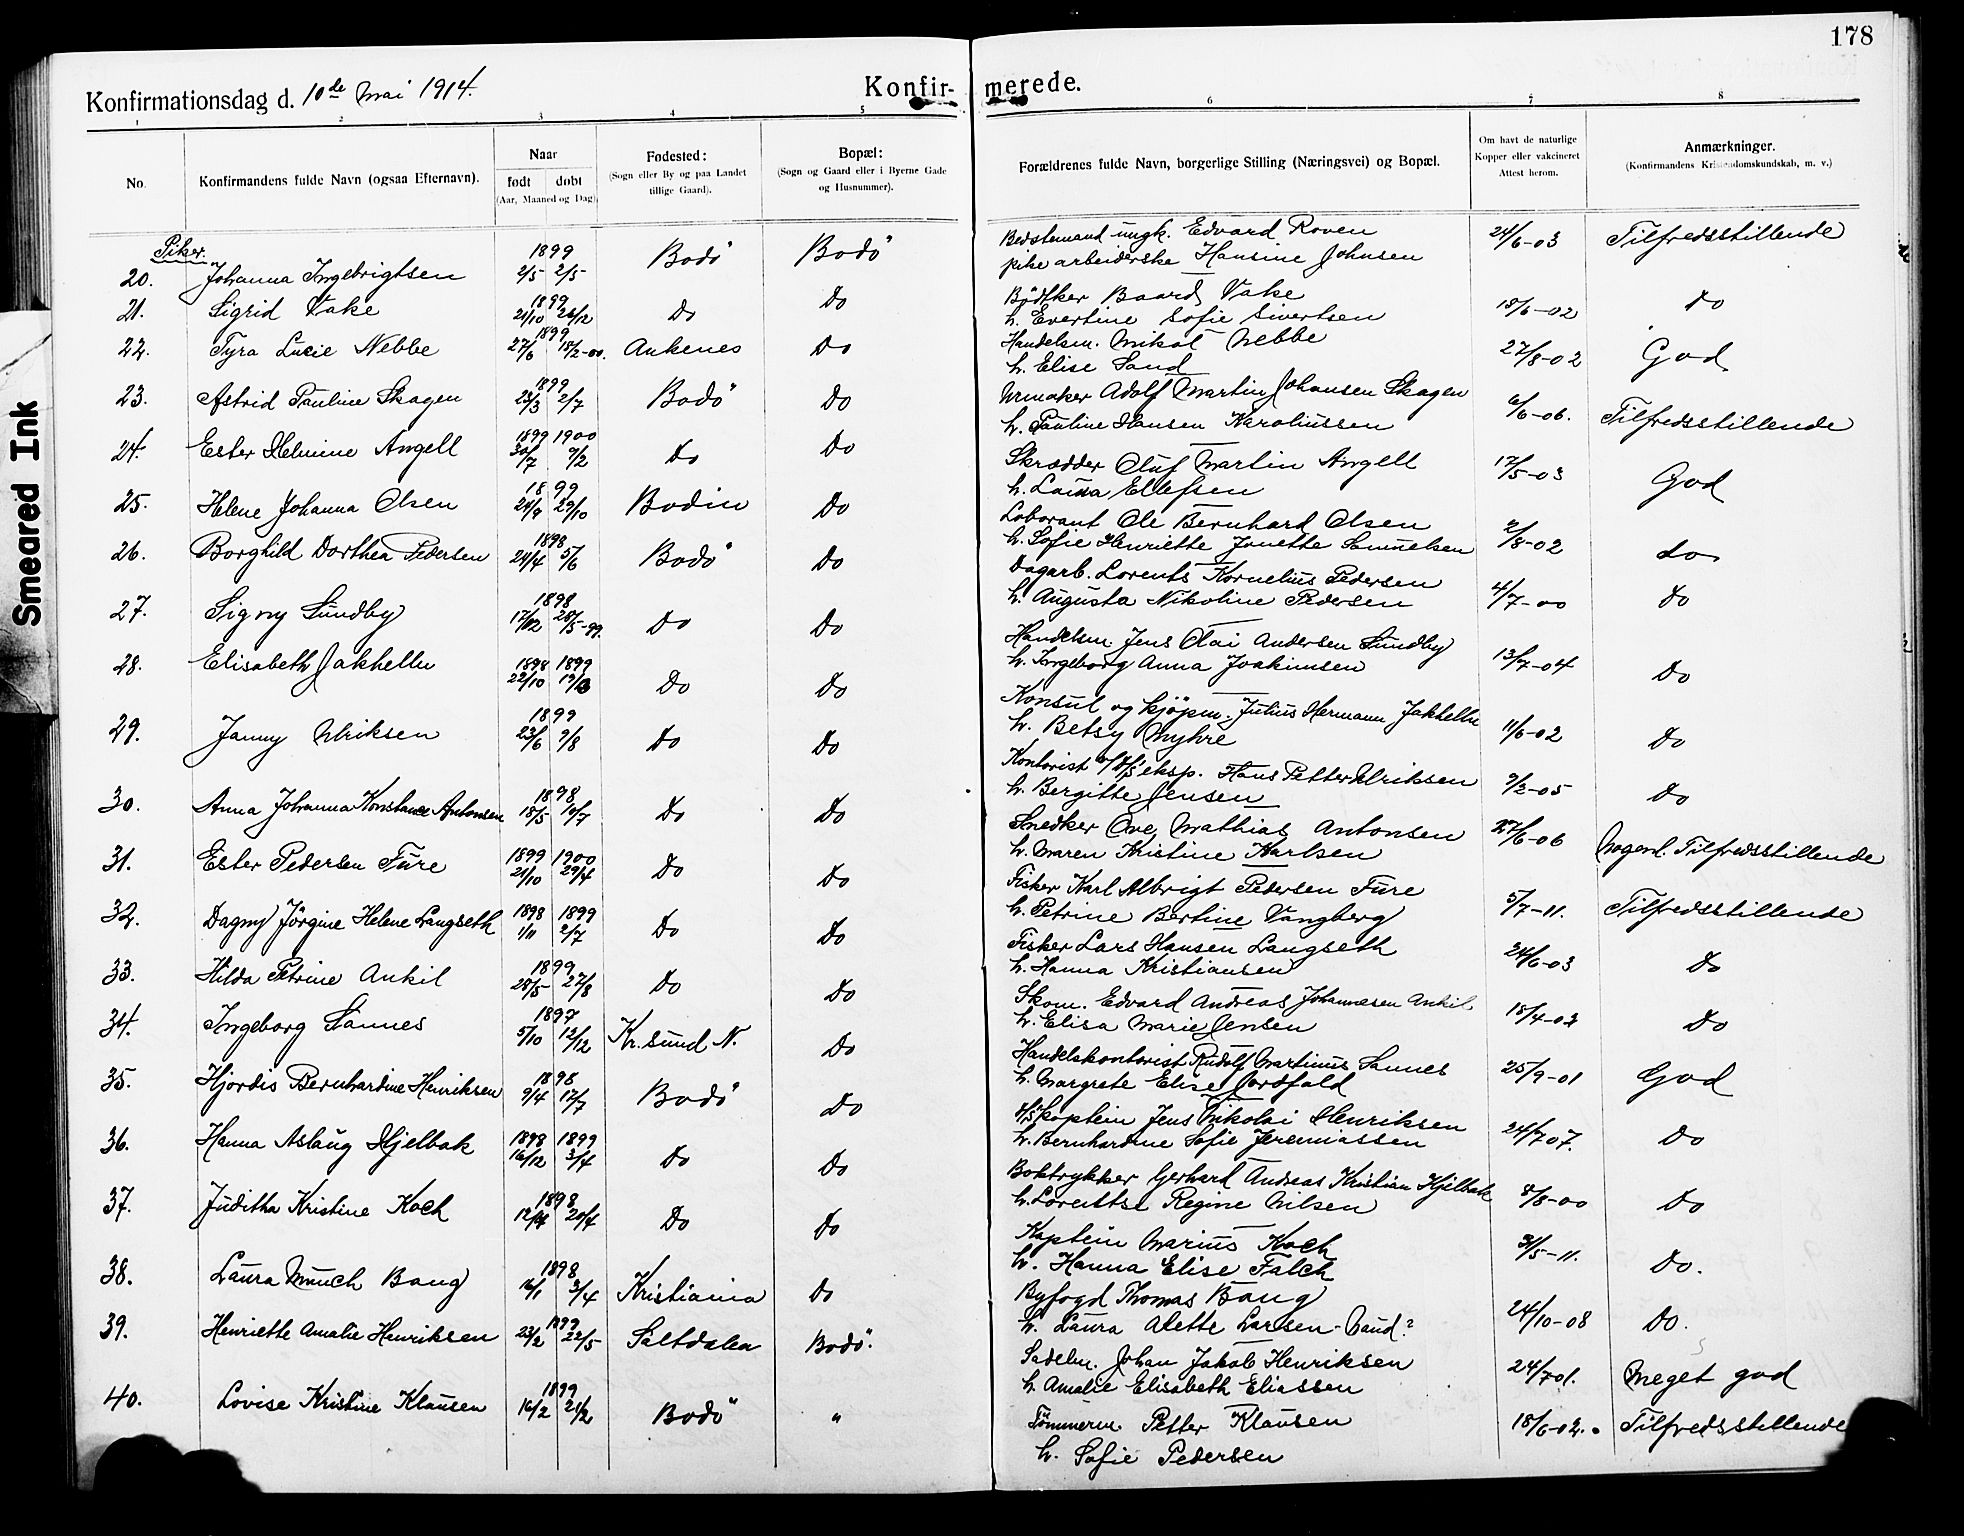 178
Konfirmationsdag d. 10de Mai 1914.
Konfir-
merede.
1 2 3 4 5 6 7 8
No. Konfirmandens fulde Navn (ogsaa Efternavn). Naar født døbt (Aar, Maaned og Dag). Fødested: (Sogn eller By og paa Landet tillige Gaard). Bopæl: (Sogn og Gaard eller i Byerne Gade og Husnummer). Forældrenes fulde Navn, borgerlige Stilling (Næringsvei) og Bopæl. Om havt de naturlige Kopper eller vakcineret Attest herom. Anmærkninger. (Konfirmandens Kristendomskundskab, m. v.)
Piker.
20. Johanna Ingebrigtsen 1899 2/5 2/5 Bodö Bodö Bedstemand ungk. Edvard Roven 24/6-03 Tilfredsstillende
pike arbeiderske Hansine Johnsen
21. Sigrid Vake 1899 21/10 26/12 Do Do Bödtker Baard Vake 18/6-02 Do
h. Evertine Sofie Sivertsen
22. Tyra Lucie Nebbe 1899 27/6 18/2-00. Ankenes Do Handelsm. Mikal Nebbe 27/8-02 God
h. Elise Sand
23. Astrid Pauline Skagen 1899 23/3 2/7 Bodö Do Urmaker Adolf Martin Johansen Skagen 6/6-06. Tilfredsstillende
h. Pauline Hansen Karoliussen
24. Ester Helmine Angell 1899 1900 30/7 9/2 Do Do Skrædder Oluf Martin Angell 17/5-03 God
h. Laura Ellefsen
25. Helene Johanna Olsen 1899 24/9 29/10 Bodin Do Laborant Ole Bernhard Olsen 2/8-02 do
h. Sofie Henriette Janette Samuelsen
26. Borghild Dorthea Pedersen 1898 24/4 5/6 Bodö Do Dagarb. Lorents Kornelius Pedersen 4/7-00 Do
h. Augusta Nikoline Pedersen
27. Signy Sundby 1898 17/12 28/5-99. Do Do Handelsm. Jens Olai Andersen Sundby 13/7-04 Do
h. Ingeborg Anna Joakimsen
28. Elisabeth Jakhelln 1898 1899 22/10 Do Do Konsul og kjøpm. Julius Hermann Jakhelln 11/6-02 Do
h. Betsy Myhre
29. Janny Ulriksen 1899 23/6 9/8 Do Do Kontorist eksp. Hans Petter Ulriksen 9/2-05 Do
h. Bergitte Jensen
30. Anna Johanna Konstance Antonsen 1898 18/5 10/7 Do Do Snedker Ove Mathias Antonsen 27/6-06 Nogenl. Tilfredsstillende
h. Maren Kristine Karlsen
31. Ester Pedersen Fure 1899 1900 21/10 29/4 Do Do Fisker Karl Albrigt Pedersen Fure 5/7-11. Tilfredsstillende
h. Petrine Bertine Vangberg
32. Dagny Jörgine Helene Langseth 1898 1899 1/11 2/7 Do Do Fisker Lars Hansen Langseth 24/6-03 Do
h. Hanna Kristiansen
33. Hilda Petrine Ankil 1899 28/5 27/8 Do Do Skom. Edvard Andreas Johannesen Ankil 18/4-02 Do
h. Elisa Marie Jensen
34. Ingeborg Sannes 1897 5/10 12/12 Kr. sund N. Do Handelskontorist Rudolf Martinus Sannes 25/9-01 God
h. Margrete Elise Jordfald
35. Hjordis Bernhardine Henriksen 1898 9/4 17/7 Bodö Do kaptein Jens Nikolai Henriksen 24/7 07. Do
h. Bernhardine Sofie Jeremiassen
36. Hanna Aslaug Hjelbak 1898 1899 16/12 3/4 Do Do Boktrykker Gerhard Andreas Kristian Hjelbak 8/8-00 Do
h. Lorentse Regine Nilsen
37. Juditha Kristine Koch 1898 20/4 Do Do Kaptein Marius Koch 3/5-11. Do.
h. Hanna Elise Falch
38. Laura Munch Bang 1898 16/1 3/4 Kristiania Do Byfogd Thomas Bang 24/10-08 Do.
h. Laura Alette Larsen-
39. Henriette Amalie Henriksen 1899 23/2 22/5 Saltdalen Bodö. Sadelm. Johan Jakob Henriksen 24/7 01. Meget god
h. Amalie Elisabeth Eliassen
40. Lovise Kristine Klausen 1899 16/2 21/2 Bodö " Tömmerm. Petter Klausen 18/6-02. Tilfredsstillende
h. Sofie Pedersen
Smeared Ink